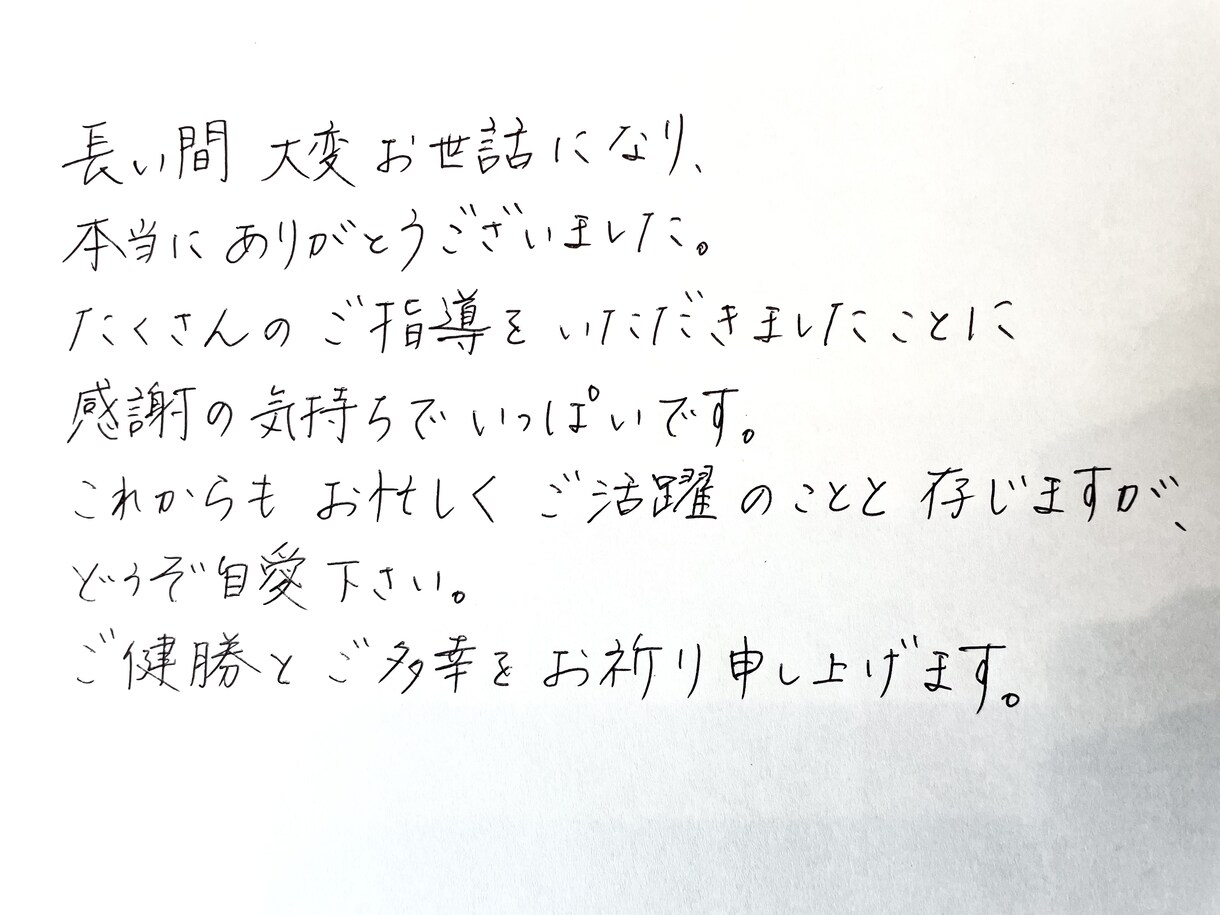 長い間 大変お世話になり、
本当にありがとうございました。
たくさんのご指導をいただきましたことに
感謝の気持ちでいっぱいです。
これからもお忙しくご活躍のことと存じますが、
どうぞ自愛下さい。
ご健勝とご多幸をお祈り申し上げます。